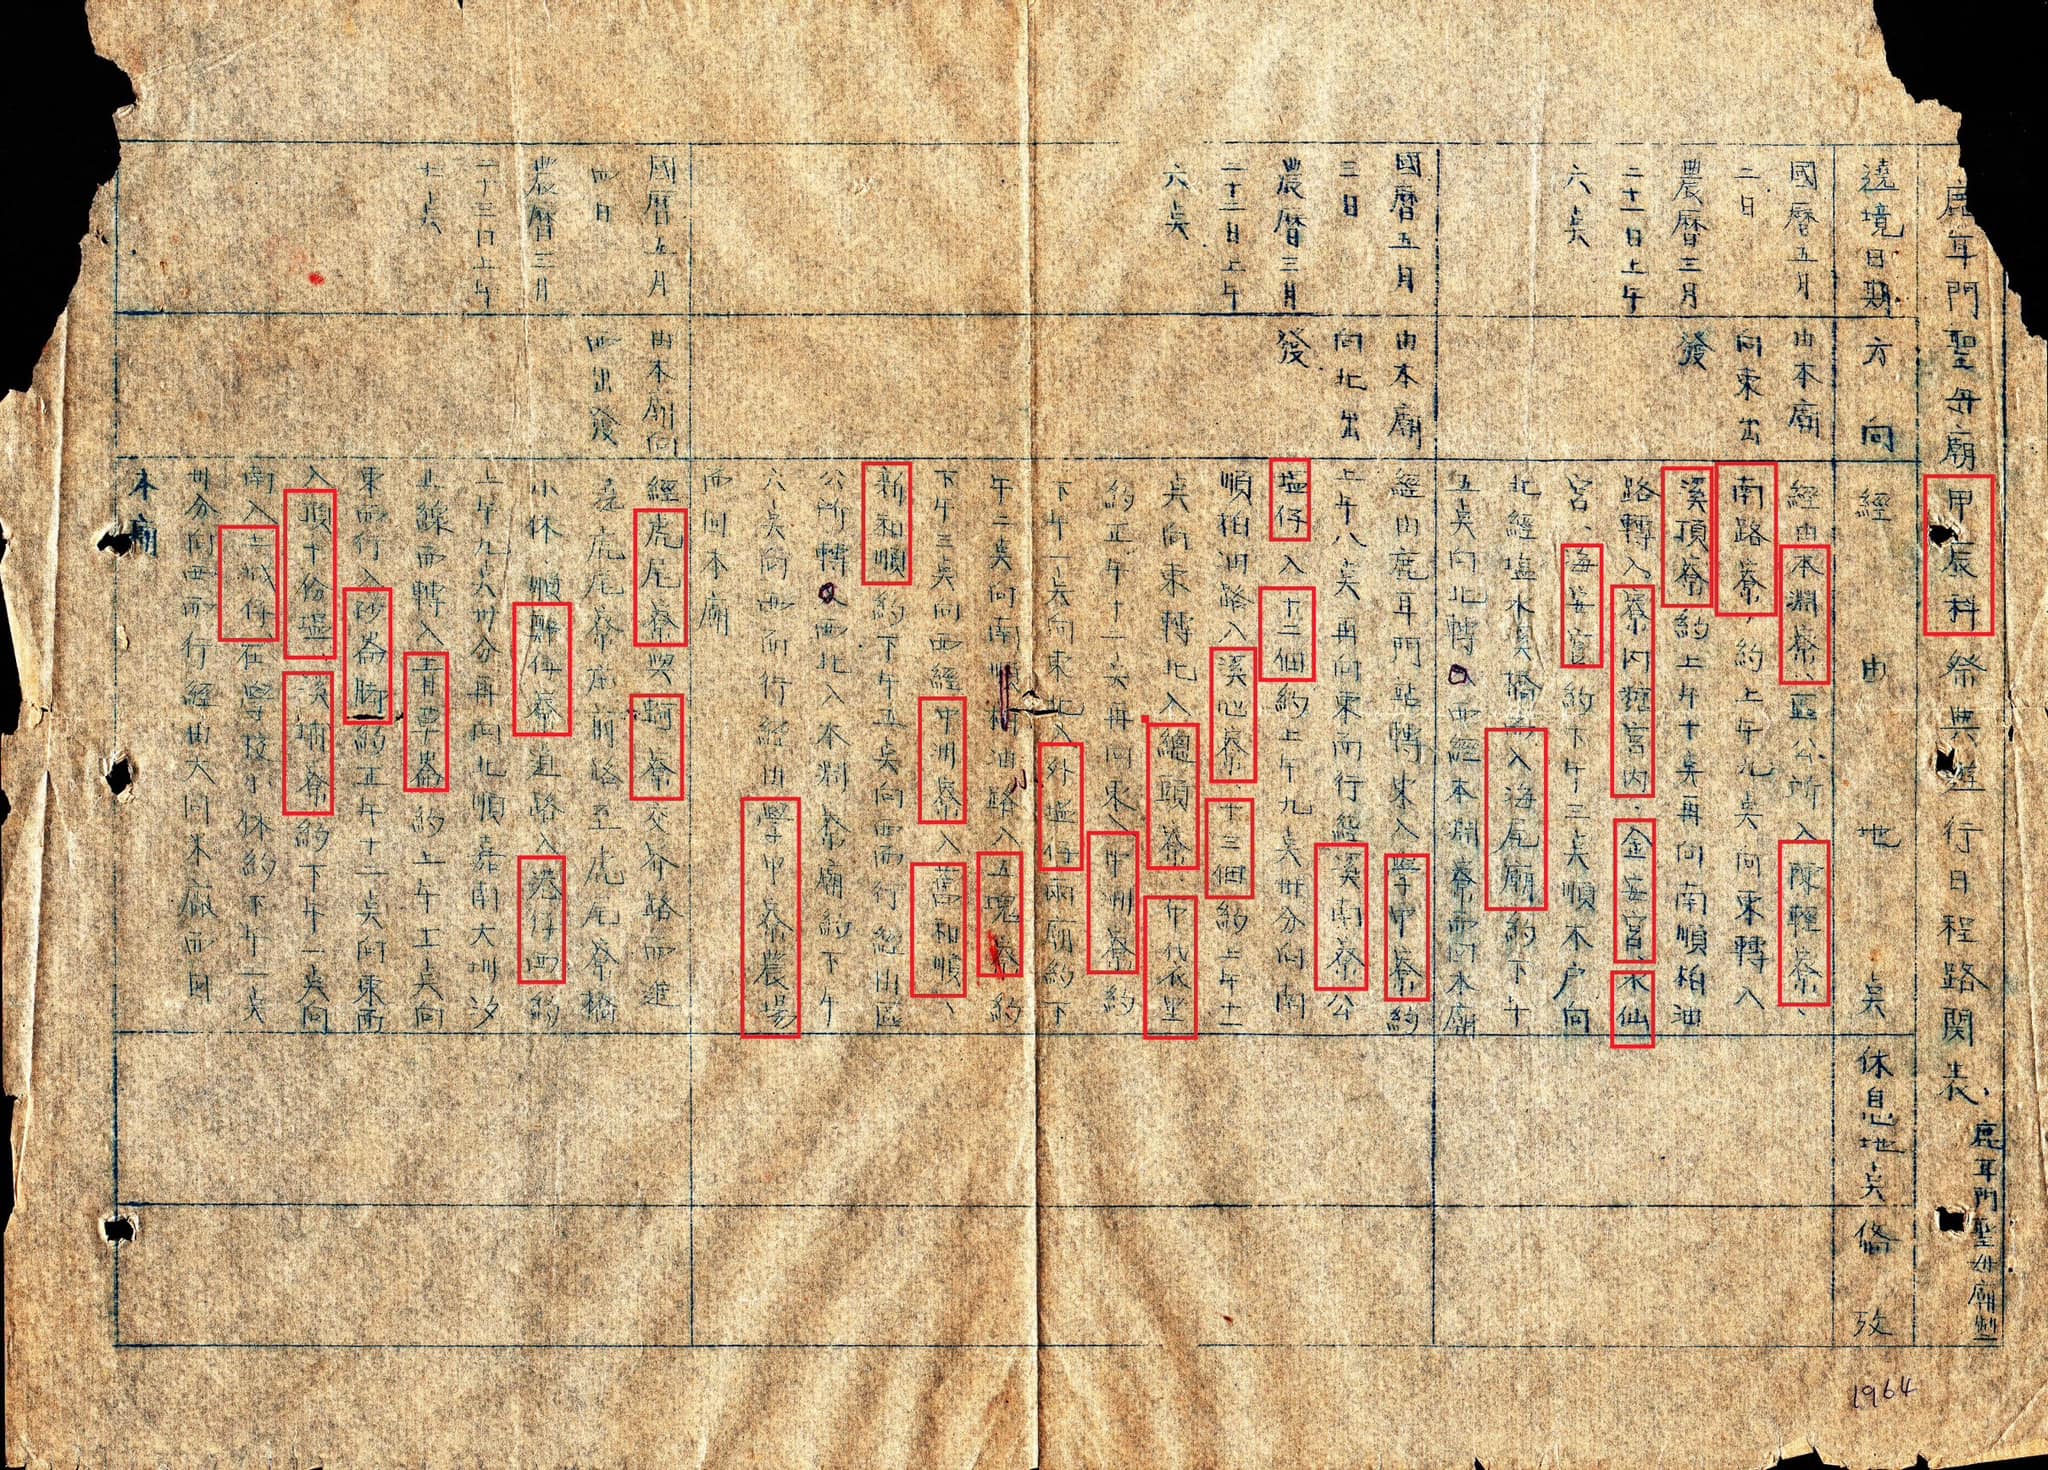 鹿耳門聖母廟甲辰科祭典遊行日程路関表、
鹿耳門聖母廟製
遶境日期
方向
經由地奌
休息地奌
備攷
國曆五月
二日
農曆三月
二十一日上午
六奌
由本廟
向東出
發
經由本淵寮、區公所入陳輕寮、
南路寮、約上午九奌向東轉入
溪頂寮約上午十奌再向南順柏油
路轉入寮內媽宮內、金安宮、水仙
宮、海安宮約下午三奌順木户向
北經塩水溪橋入海尾廟約下午
五奌向北轉入西經本淵寮而回本廟
國曆五月
三日
農曆三月
二十二日上午
六奌
由本廟
向北出
發
經由鹿耳門站轉東入學甲寮約
上午八奌再向東而行經溪南寮公
塭仔入十二佃約上午九奌卅分向南
順柏油路入溪心寮、十三佃約上午十一
奌向東轉北入總頭寮、布袋嘴
約正午十二奌再向東入中洲寮約
下午一奌向東北入外塭仔兩廟約下
午二奌向南順柏油路入五塊寮約
下午三奌向西經中洲寮入舊和順、
新和順約下午五奌向西而行經由區
公所轉入西北入本淵寮廟約下午
六奌向西而行經由學甲寮農場
而回本廟
國曆五月
四日
農曆三月
二十三日上午
七奌
由本廟向
西出發
經虎尾寮與蚵寮交界路而進
是虎尾寮廟前路至虎尾寮橋
小休 順蘇仔寮進路入港仔西約
上午九奌卅分再向北順嘉南大圳汐
北線而轉入青草崙約上午十一奌向
東而行入砂崙脚約正午十二奌向東而
入頂十份塭、溪埔寮約下午一奌向
南入土城仔在學校小休約下午一奌
卅分向西而行經由大同米廠而回
本廟
1964